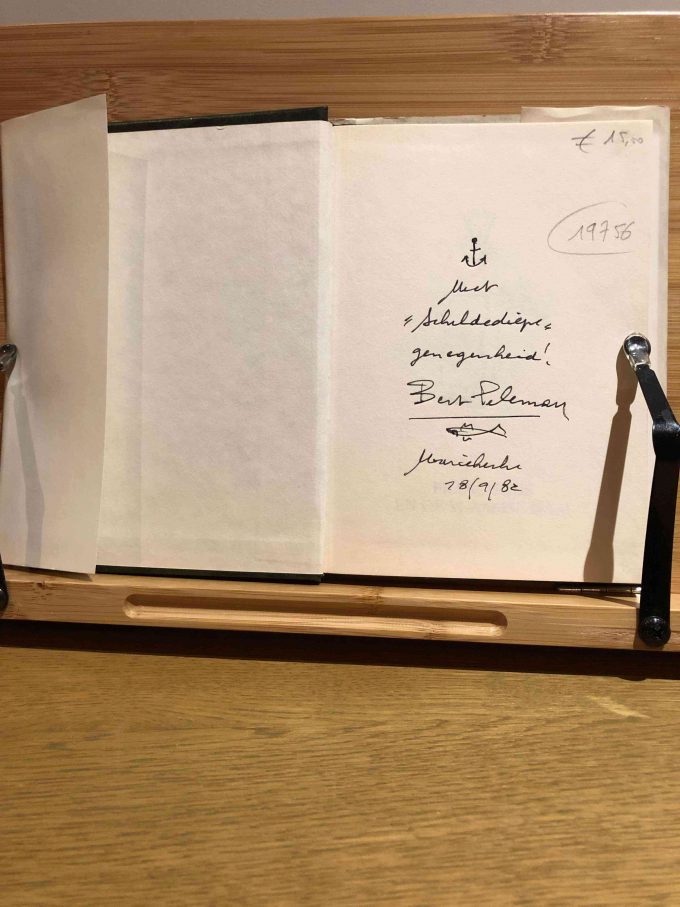 € 15,50
19756
Met
"Scheldediepe"
genegenheid!
Bert Peleman
Mariekerke
18/9/82